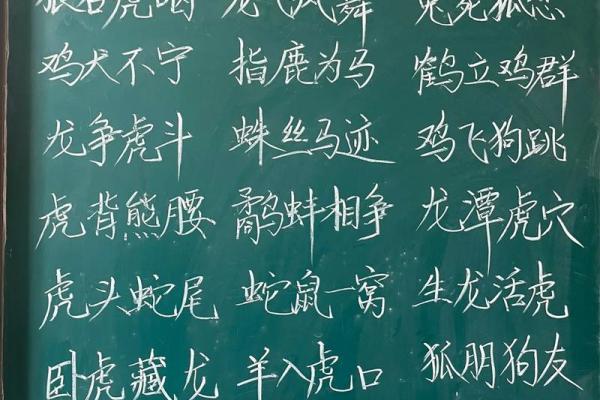 狼吞虎咽 龙飞凤舞 兔死狐悲
鸡犬不宁 指鹿为马 鹤立鸡群
龙争虎斗 蛛丝马迹 鸡飞狗跳
虎背熊腰 鹬蚌相争 龙潭虎穴
虎头蛇尾 蛇鼠一窝 生龙活虎
卧虎藏龙 羊入虎口 狐朋狗友